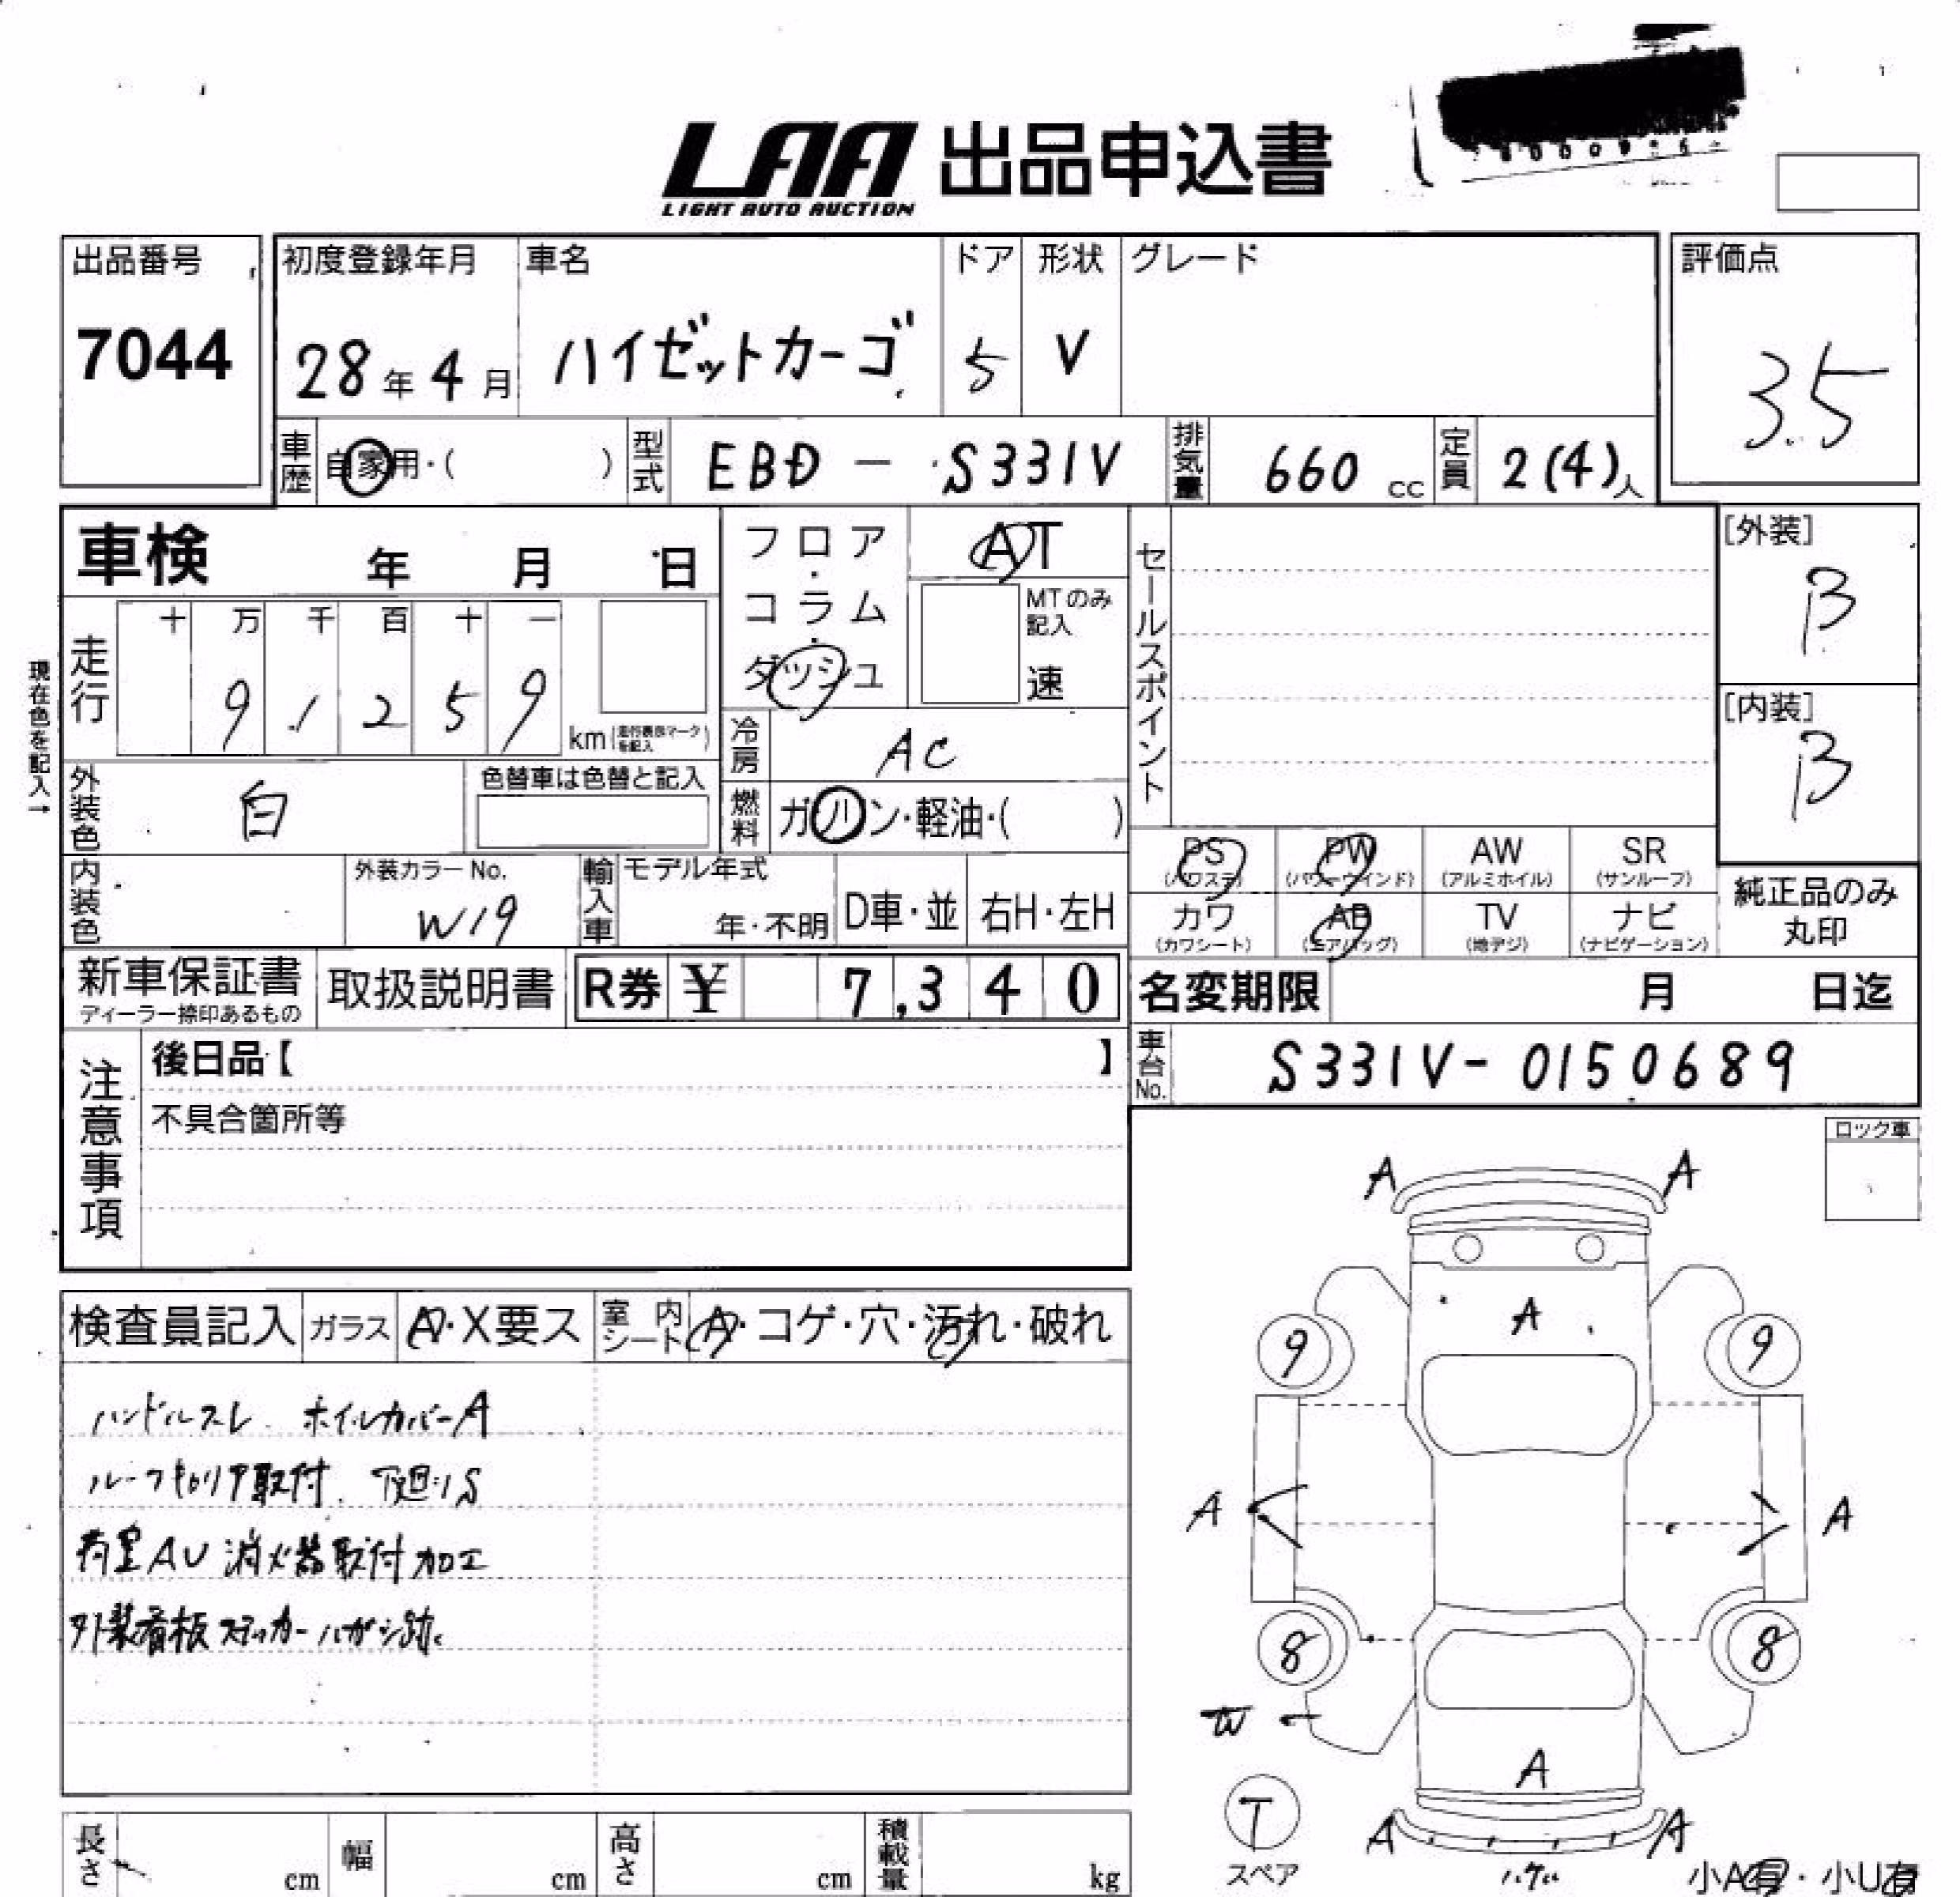 LAA 出品申込書
LIGHT AUTO AUCTION
出品番号
7044
初度登録年月
28年4月
車名
ハイゼットカーゴ
ドア
5
形状
V
グレード
評価点
3.5
車歴 自家用・( )
型式 EBD - S331V
排気量 660 cc
定員 2(4)人
車検 年 月 日
現在色を記入→
走行
十 万 千 百 十 一
9 1 2 5 9
km(走行表示マークを記入)
フロア・コラム・ダッシュ
AT
MTのみ記入
速
冷房 AC
燃料 ガソリン・軽油・( )
セールスポイント
[外装]
B
[内装]
B
外装色 白
色替車は色替と記入
内装色
外装カラーNo.
W19
輸入車
モデル年式
年・不明
D車・並
右H・左H
PS (パワステ)
PW (パワーウインド)
AW (アルミホイル)
SR (サンルーフ)
カワ (カワシート)
AB (エアバッグ)
TV (地デジ)
ナビ (ナビゲーション)
純正品のみ
丸印
新車保証書
ディーラー捺印あるもの
取扱説明書
R券 ¥ 7,340
名変期限 月 日迄
車台No. S331V-0150689
注意事項
後日品【 】
不具合箇所等
ロック車
検査員記入
ガラス A・X要ス
室内シート A・コゲ・穴・汚れ・破れ
ハンドルスレ ホイルカバーA
ルーフキャリア取付 下廻りS
荷室AU 消火器取付加工
外装看板ステッカーハガシ跡
A A
A
9 9
A A
8 8
W
A
T
スペア
A A
ハゲ
小A有・小U有
長さ cm
幅 cm
高さ cm
積載量 kg